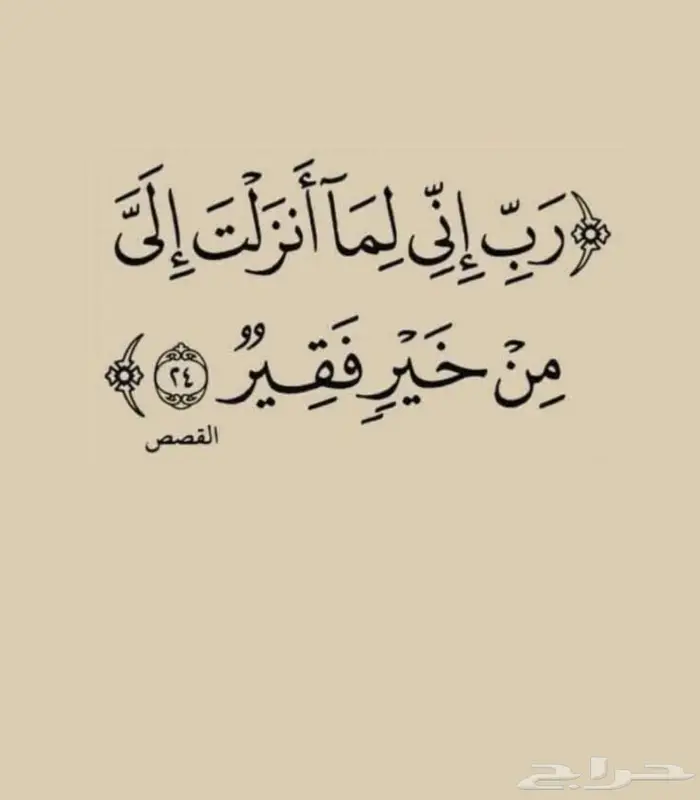 ﴿رَبِّ إِنِّى لِمَآ أَنزَلْتَ إِلَىَّ
مِنْ خَيْرٍ فَقِيرٌ ٢٤﴾
القصص
حراج